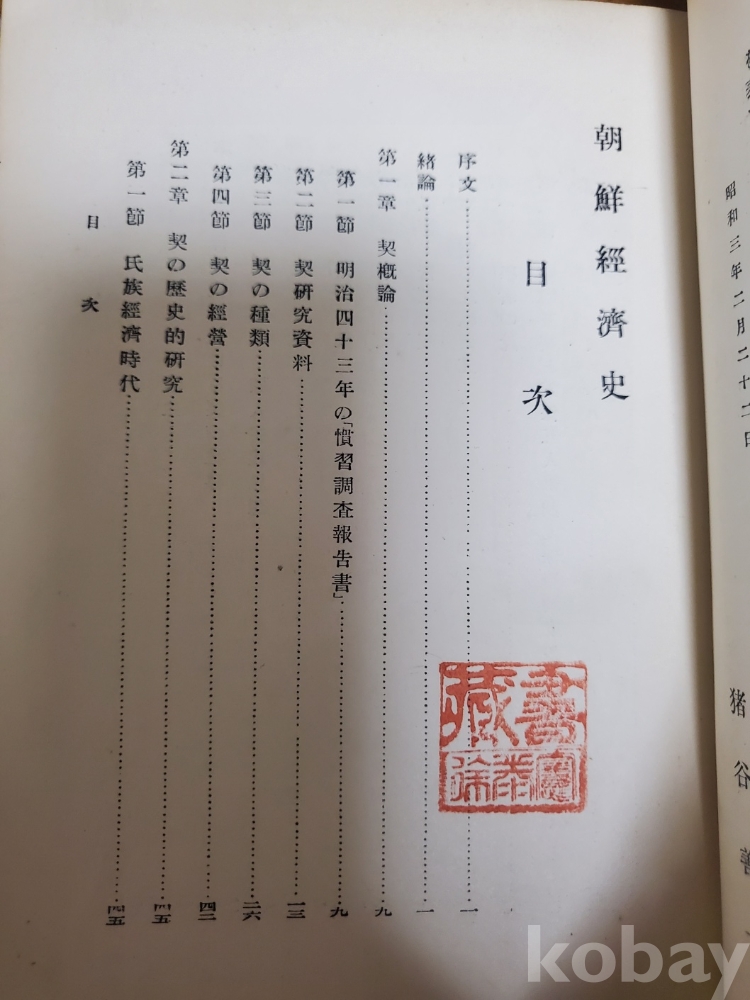 昭和三年二月二十二日
猪谷善
朝鮮經濟史
目次
序文 一
緒論 一
第一章 契概論 九
第一節 明治四十三年の「慣習調査報告書」 九
第二節 契研究資料 一三
第三節 契の種類 二六
第四節 契の經營 四二
第二章 契の歷史的研究 四五
第一節 氏族經濟時代 四五
目次
藏書
kobay